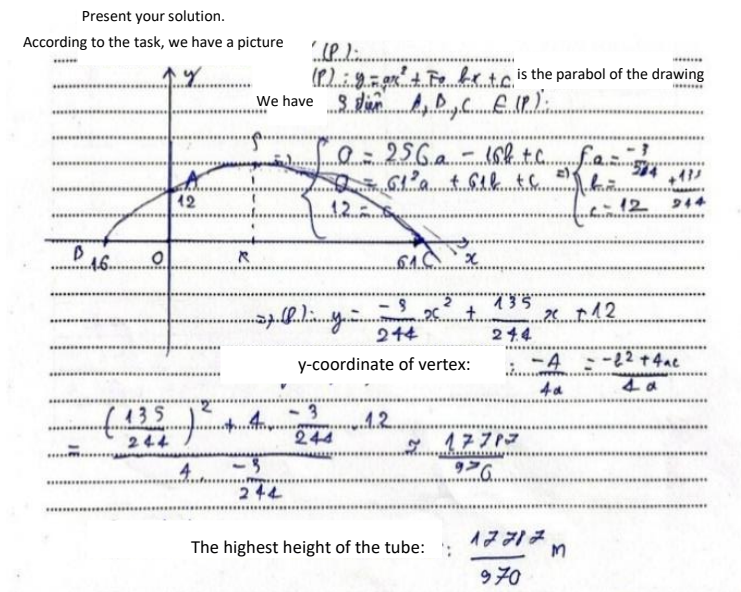 Present your solution.
According to the task, we have a picture
(P):
(P): y = ax² + bx + c is the parabol of the drawing
We have 3 điểm A, B, C ∈ (P):
y
S
=> { 0 = 256a - 16b + c => { a = -3/244
A 0 = 61²a + 61b + c b = +135/244
12 12 = c c = 12
B 16 O R 61 C x
=> (P): y = -3/244 x² + 135/244 x + 12
y-coordinate of vertex: : -Δ/4a = -b²+4ac/4a
= (135/244)² + 4 · -3/244 · 12 / 4 · -3/244 = 17787/976
The highest height of the tube: : 17787/970 m